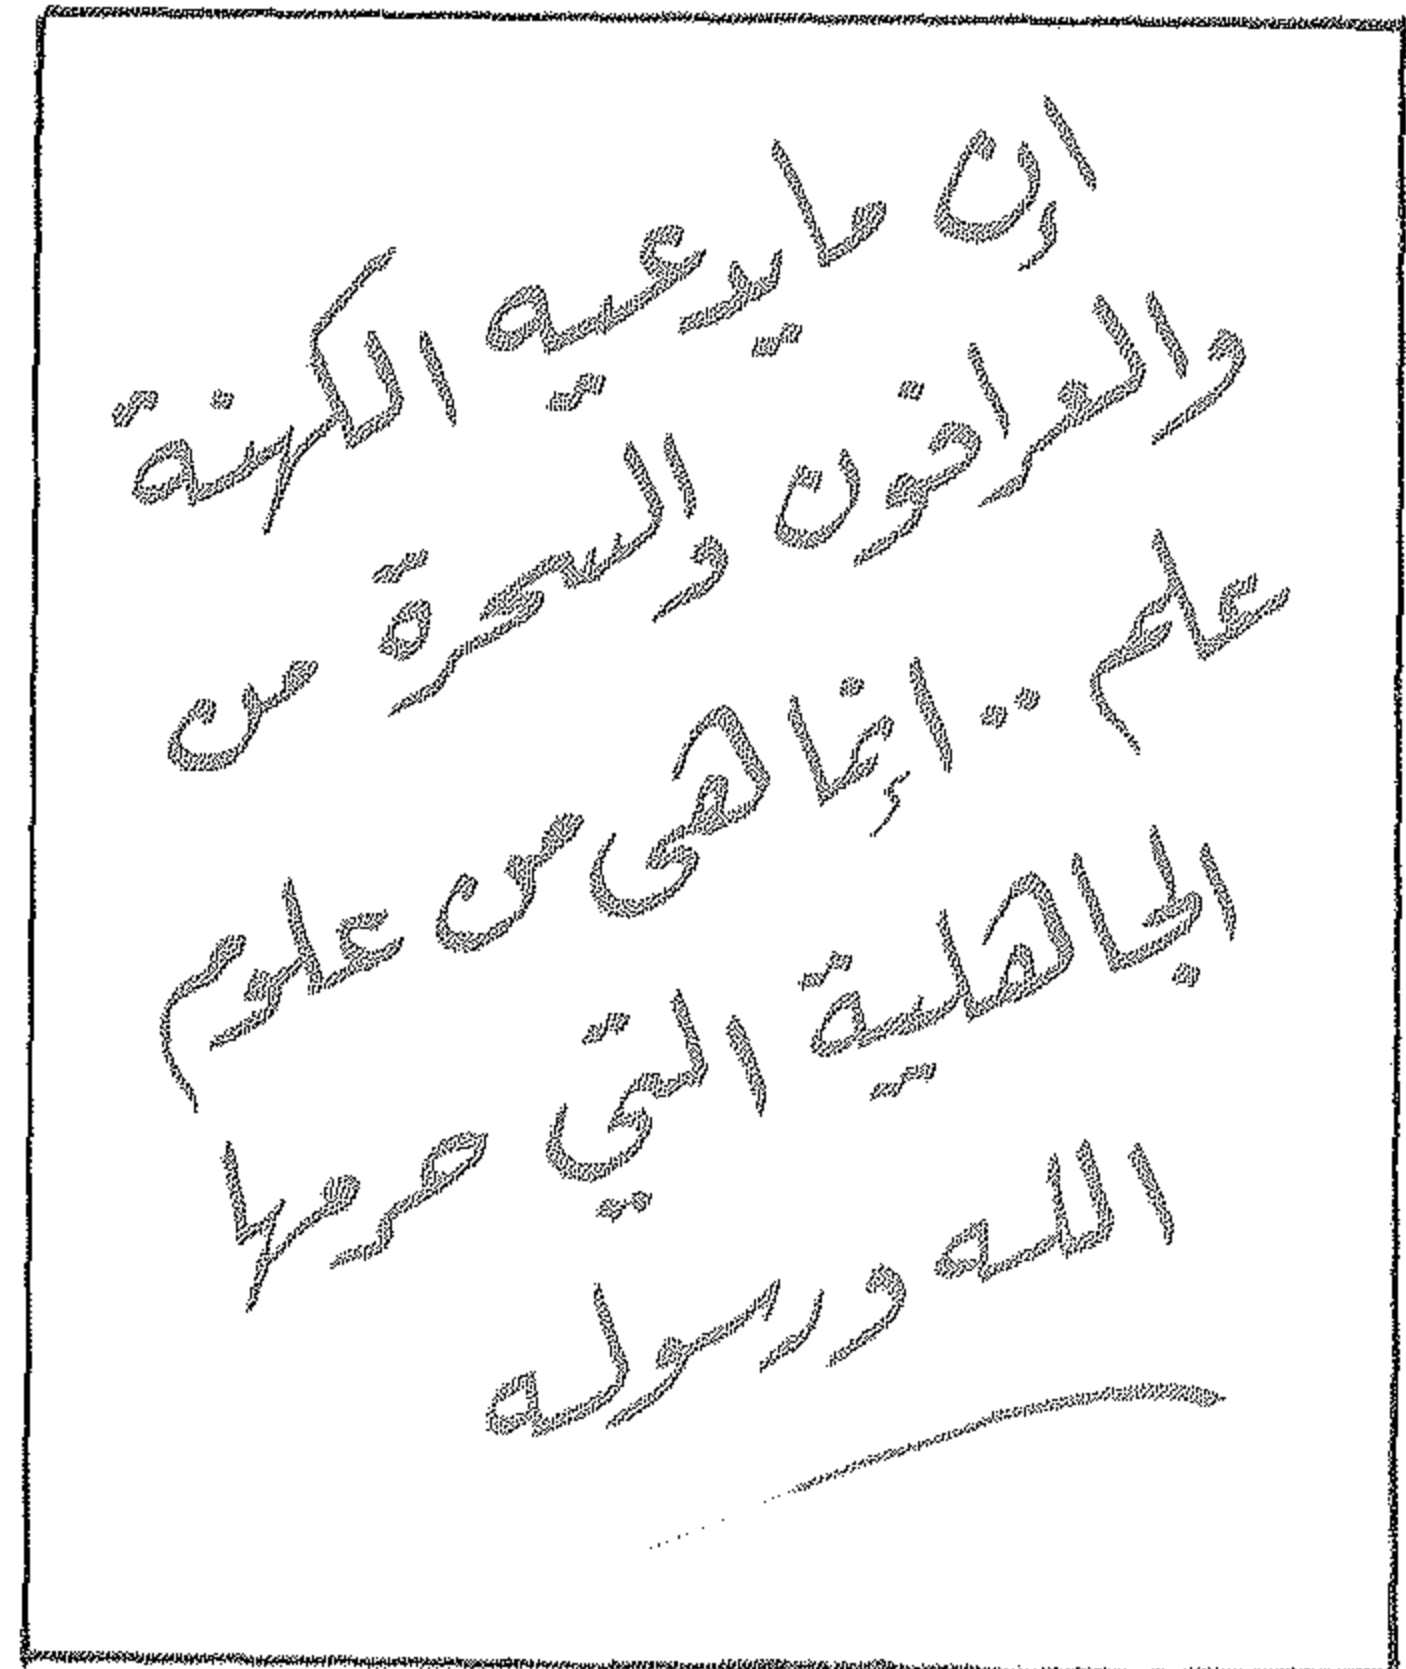 إن ما يدعيه الكهنة
والعرافون والسحرة من
علم .. إنما هى من علوم
الجاهلية التي حرمها
الله ورسوله